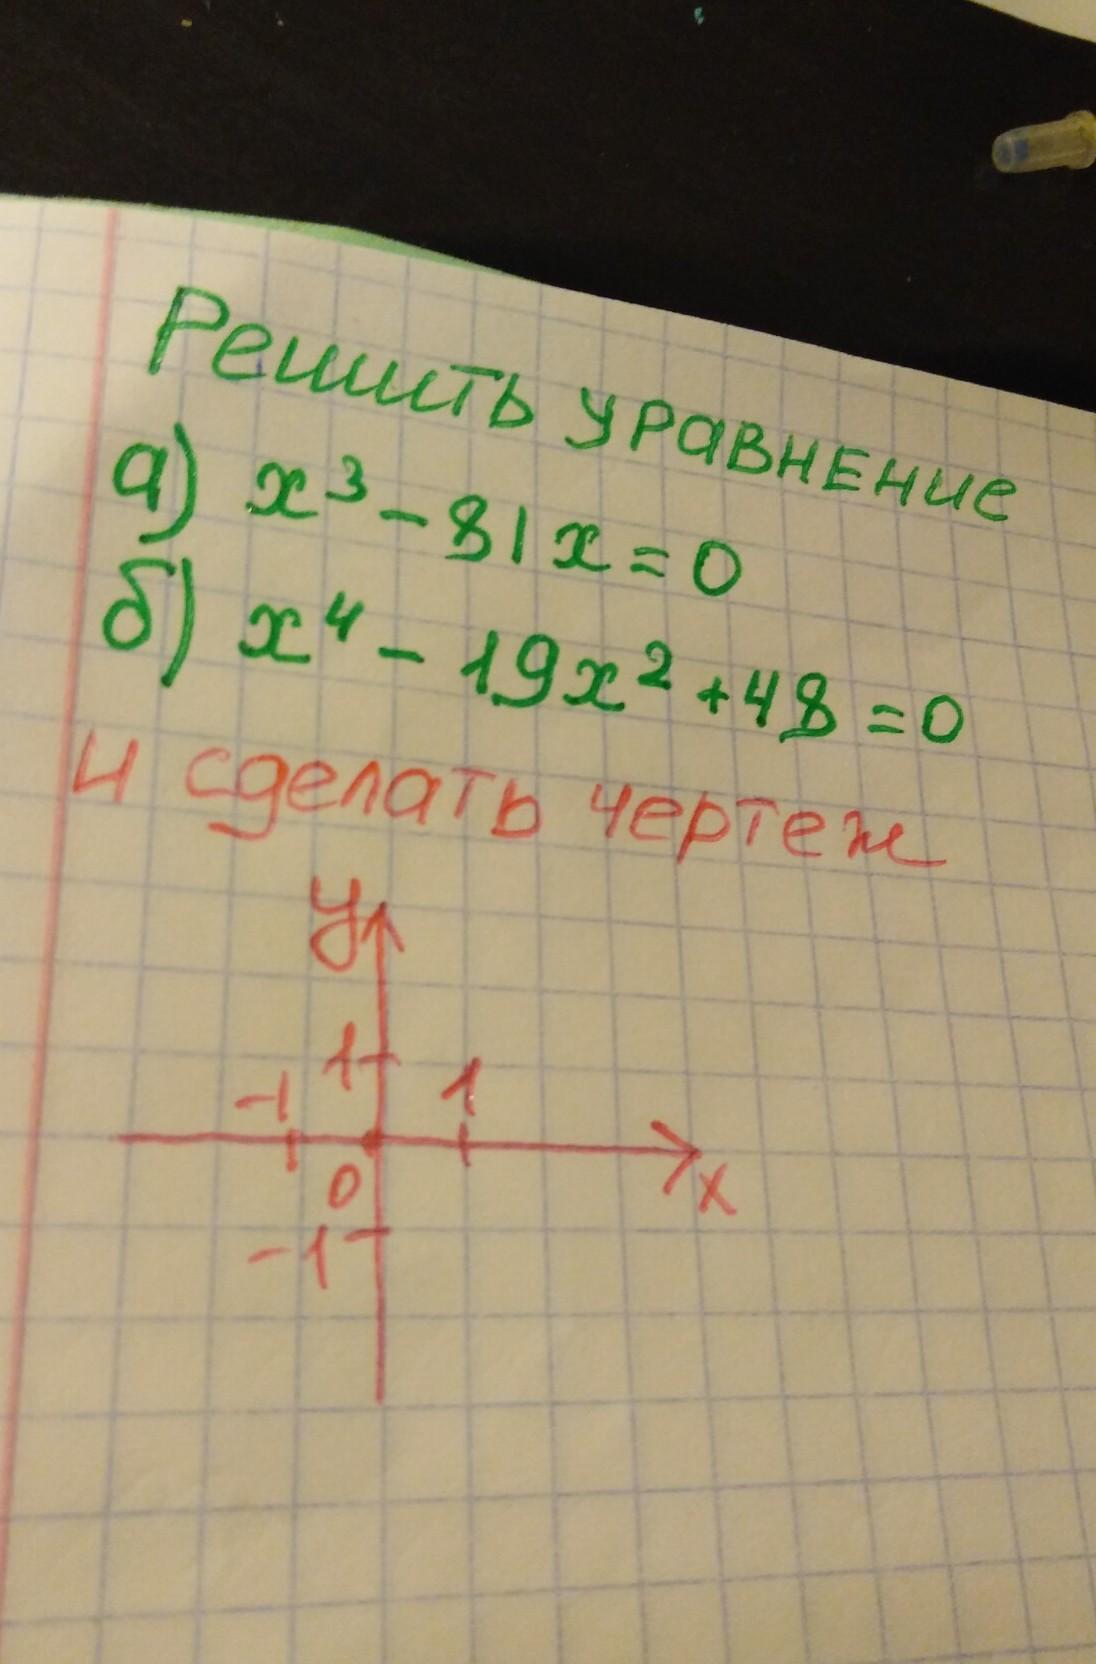 Решить уравнение
а) x³ - 81x = 0
б) x⁴ - 19x² + 48 = 0
и сделать чертеж
y
1
-1 1
0 x
-1